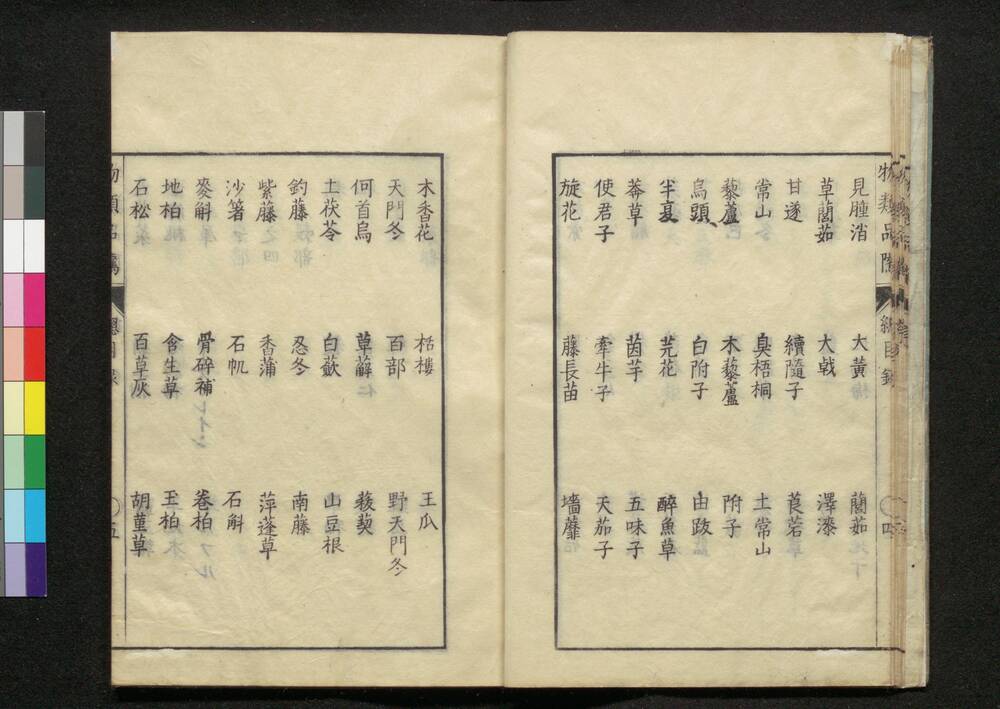 見腫消　大黄　藺茹
草藺茹　大戟　澤漆
甘遂　續隨子　莨菪
常山　臭梧桐　土常山
藜蘆　木藜蘆　附子
烏頭　白附子　由跋
半夏　芫花　醉魚草
莽草　茵芋　五味子
使君子　牽牛子　天茄子
旋花　藤長苗　墻蘼
木香花　栝樓　王瓜
天門冬　百部　野天門冬
何首烏　萆薢　菝葜
土茯苓　白蘞　山豆根
釣藤　忍冬　南藤
紫藤　香蒲　萍蓬草
沙箸　石帆　石斛
麥斛　骨碎補　卷柏
地柏　含生草　玉柏
石松　百草灰　胡菫草